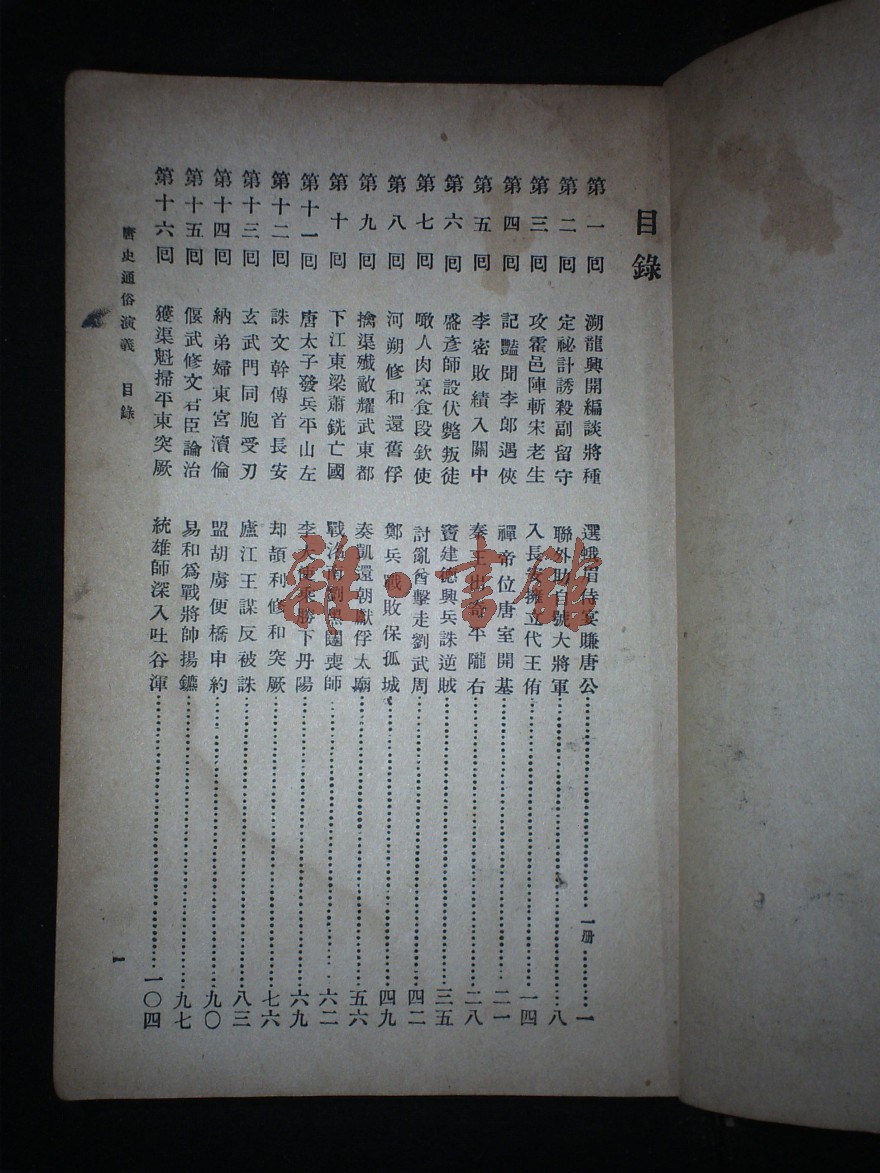 目錄
第一回 溯龍興開編談將種 選蛾眉侍宴賺唐公 一册 一
第二回 定祕計誘殺副留守 聯外助自號大將軍 八
第三回 攻霍邑陣斬宋老生 入長安擁立代王侑 一四
第四回 記豔聞李郎遇俠 禪帝位唐室開基 二一
第五回 李密敗績入關中 秦王出奇平隴右 二八
第六回 盛彥師設伏斃叛徒 竇建德興兵誅逆賊 三五
第七回 啖人肉烹食段欽使 討亂酋擊走劉武周 四二
第八回 河朔修和還舊俘 鄭兵戰敗保孤城 四九
第九回 擒渠殲敵耀武東都 奏凱還朝獻俘太廟 五六
第十回 下江東梁蕭銑亡國 戰洺南劉黑闥喪師 六二
第十一回 唐太子發兵平山左 李大使乘勝下丹陽 六九
第十二回 誅文幹傳首長安 却頡利修和突厥 七六
第十三回 玄武門同胞受刃 廬江王謀反被誅 八三
第十四回 納弟婦東宮瀆倫 盟胡虜便橋申約 九〇
第十五回 偃武修文君臣論治 易和爲戰將帥揚鑣 九七
第十六回 獲渠魁掃平東突厥 統雄師深入吐谷渾 一〇四
唐史通俗演義 目錄
1
雜·書館